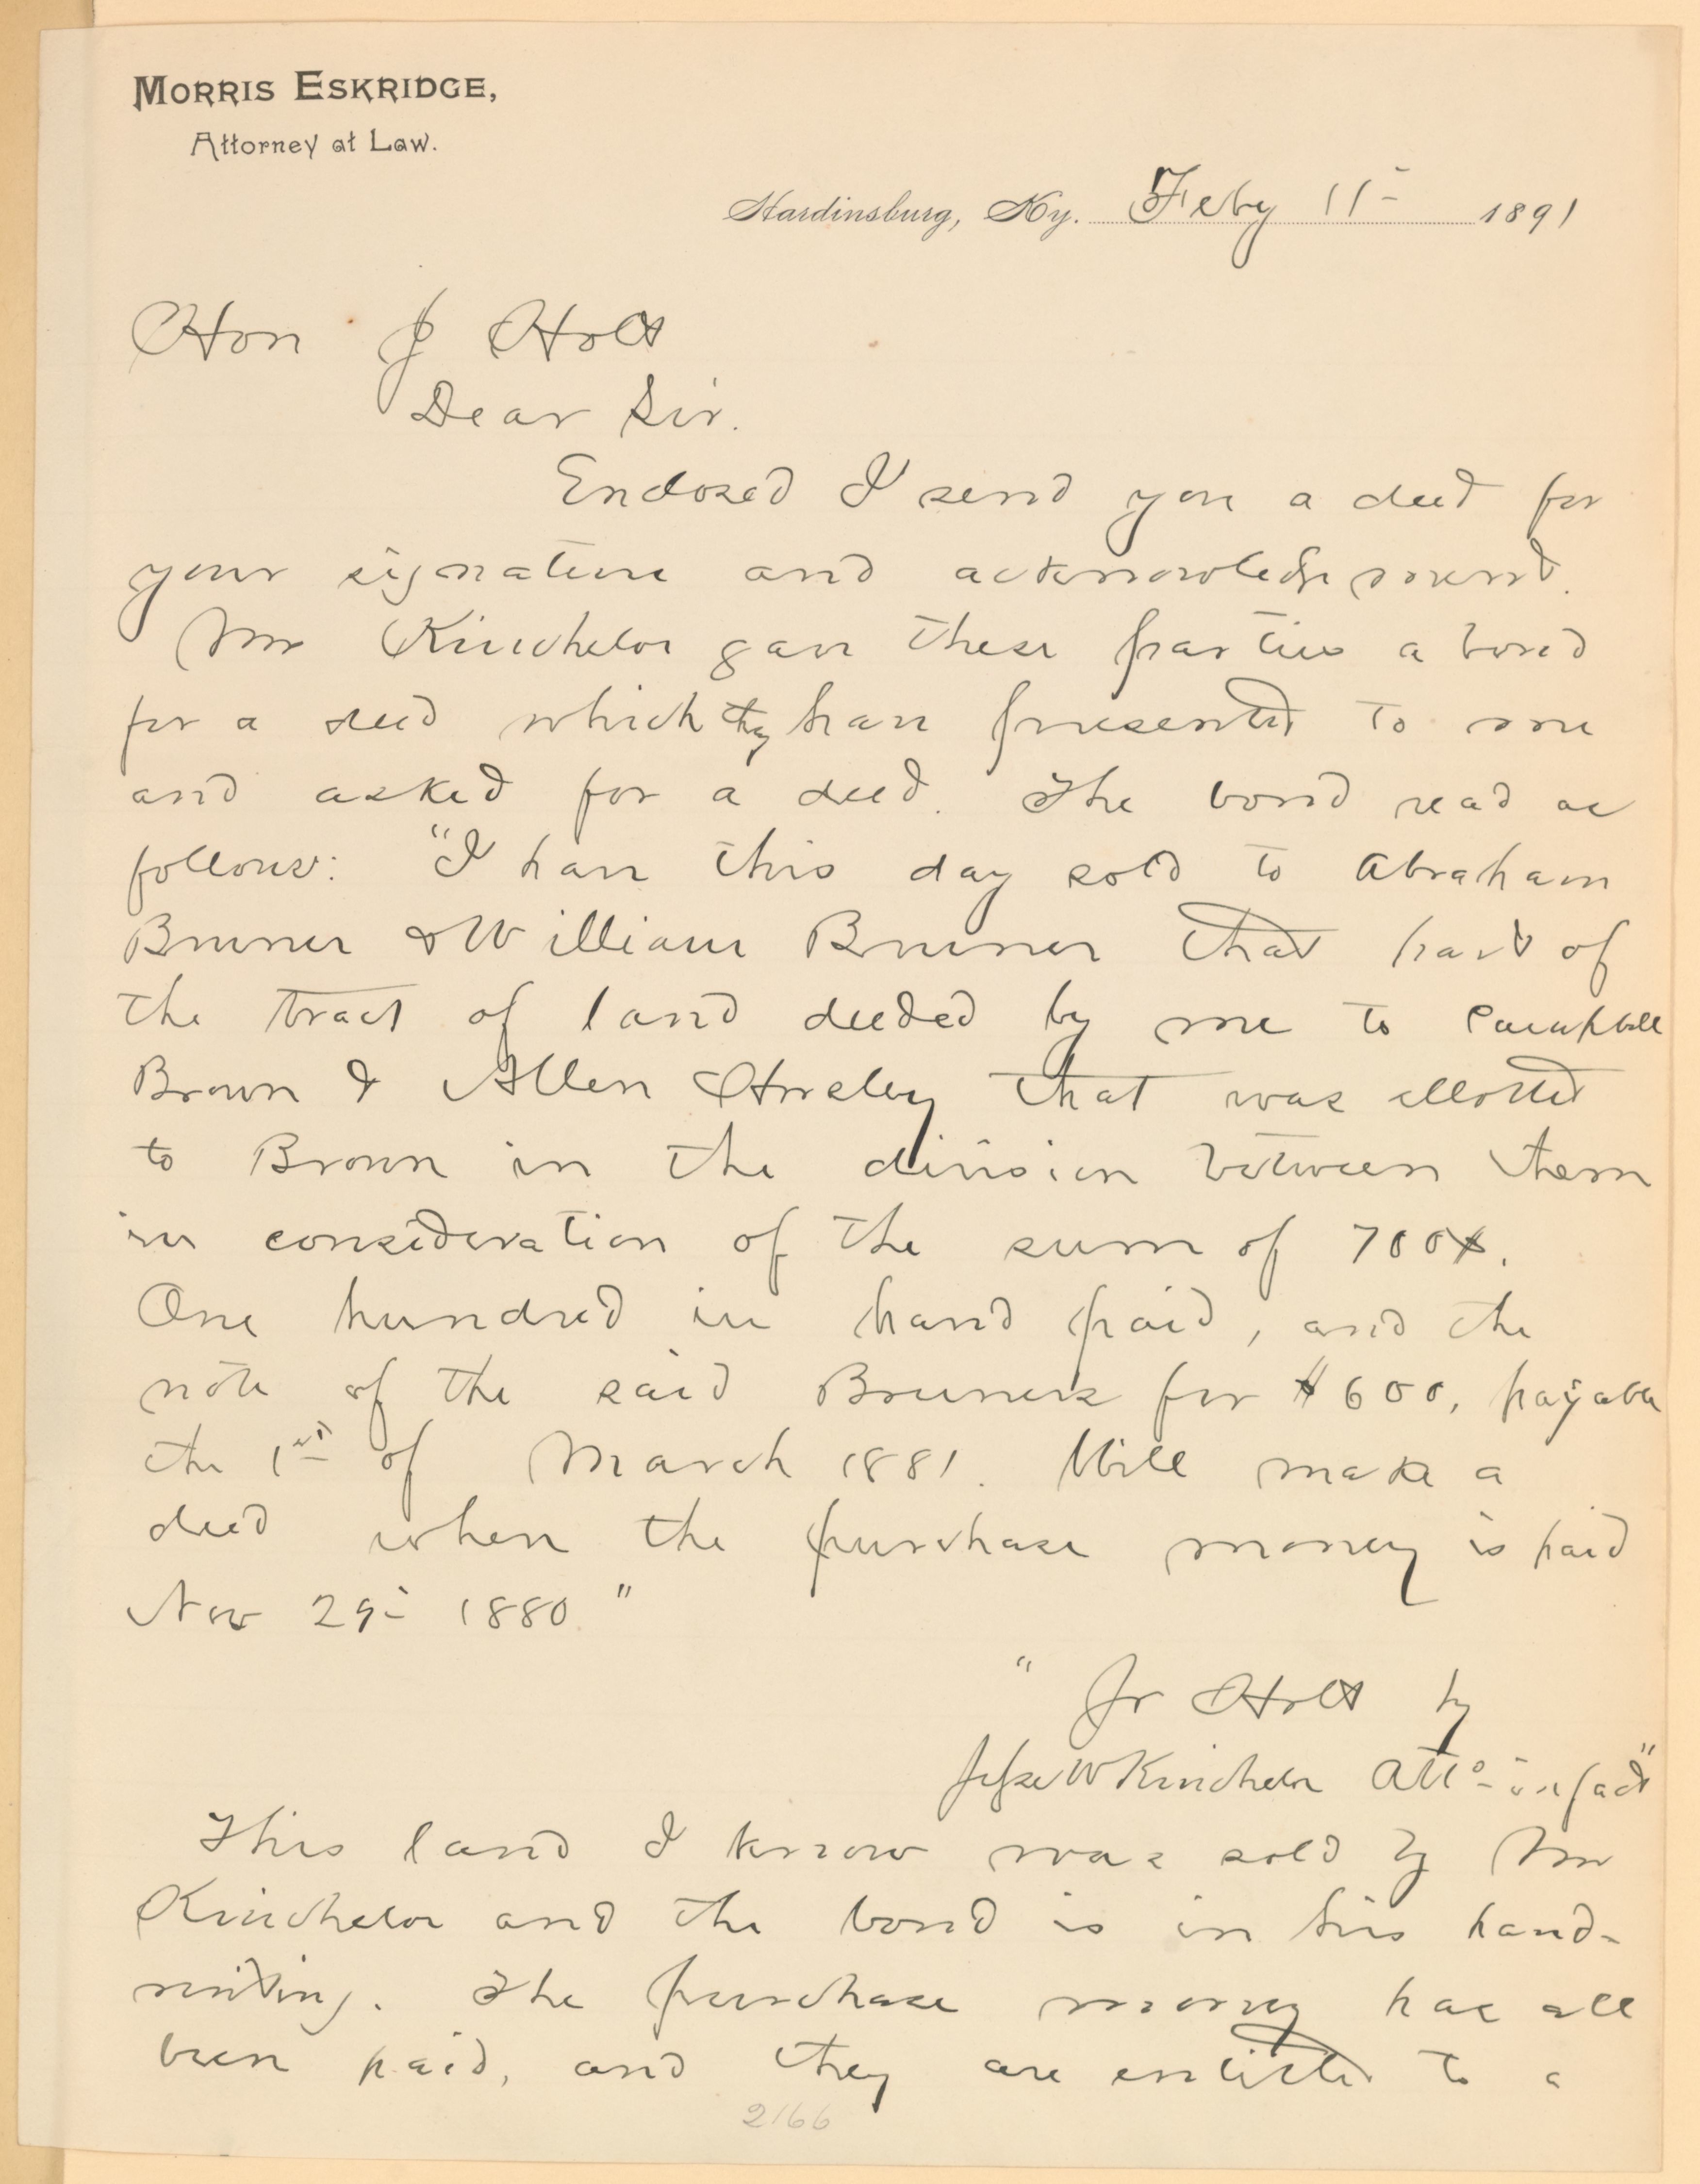 MORRIS ESKRIDGE,
Attorney at Law.
Hardinsburg, Ky. Feby 11- 1891
Hon J Holt
Dear Sir.
Enclosed I send you a deed for
your signature and acknowledgement.
Mr Kincheloe gave these parties a bond
for a deed which they have presented to me
and asked for a deed. The bond read as
follows: "I have this day sold to Abraham
Bruner & William Bruner that part of
the tract of land deeded by me to Campbell
Brown & Allen Horsley that was allotted
to Brown in the division between them
in consideration of the sum of 700$.
One hundred in hand paid, and the
note of the said Bruners for $600, payable
the 1st of March 1881. Will make a
deed when the purchase money is paid
Nov 29- 1880."
"Jr Holt by
Jesse W Kincheloe Atto- in fact"
This land I know was sold by Mr
Kincheloe and the bond is in his hand-
writing. The purchase money has all
been paid, and they are entitled to a
2166